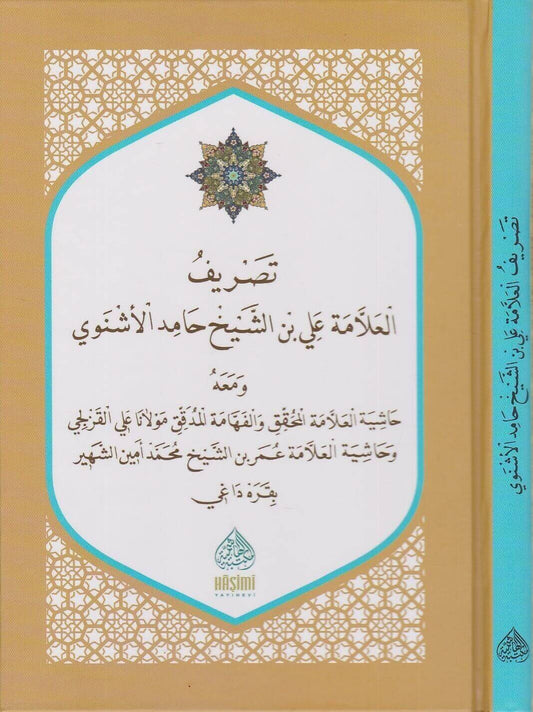 تَصْرِيفُ
الْعَلَّامَة عَلِي بْن الشَّيْخ حَامِد الْأُشْنَوِي
وَمَعَهُ
حَاشِيَة الْعَلَّامَة الْمُحَقِّق وَالْفَهَّامَة الْمُدَقِّق مَوْلَانَا عَلِي الْقَزِلْجِي
وَحَاشِيَة الْعَلَّامَة عُمَر بْن الشَّيْخ مُحَمَّد أَمِين الشَّهِير
بِقَرَه دَاغِي
HÂŞİMİ
YAYINEVİ
تَصْرِيفُ الْعَلَّامَة عَلِي بْن الشَّيْخ حَامِد الْأُشْنَوِي